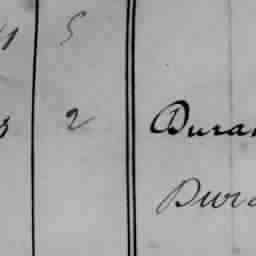 5
3 2 Duran
Dura